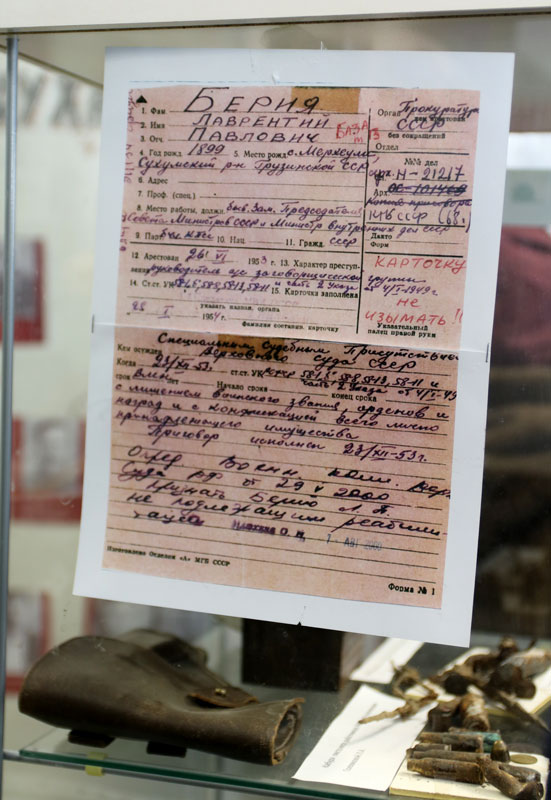 1. Фам. БЕРИЯ
2. Имя ЛАВРЕНТИЙ
3. Отч. ПАВЛОВИЧ
БАЗА
4. Год рожд. 1899 5. Место рожд. с. Мерхеули
Сухумский р-н Грузинской ССР
6. Адрес
7. Проф. (спец.)
8. Место работы, должн. быв. Зам. Председателя
Совета Министров СССР и Министр внутренних дел СССР
9. Парт. быв. 10. Нац. 11. Гражд. СССР
12. Арестован 26 VI 1953 г. 13. Характер преступ-
руководитель а/с заговорщической группы
14. Ст.ст. УК 15. Карточка заполнена
28 I 1954 г.
указать наимен. органа
фамилия составив. карточку
Орган Прокуратура
СССР
без сокращений
Отдел
№№ дел
арх. Н-21217
Арх.
Копия приговора
Дакто
Форм
КАРТОЧКУ
не
ИЗЫМАТЬ !!
Указательный
палец правой руки
Специальным Судебным Присутствием
Кем осужден Верховного Суда СССР
Когда 23/XII-53г. ст.ст. УК
срок ВМН лет Начало срока конец срока
с лишением воинского звания, орденов и
наград и с конфискацией всего лично
принадлежащего имущества
Приговор исполнен 23/XII-53г.
Опред. Воен. колл. Верх.
Суда РФ от 29 V 2000
признать Берию Л. П.
не подлежащим реабили-
тации
АВГ 2000
Изготовлено Отделом «А» МГБ СССР
Форма № 1